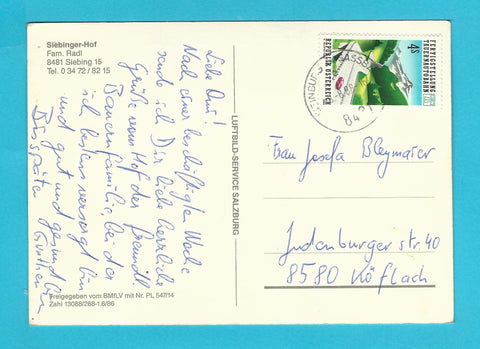 Siebinger-Hof
Fam. Radl
8481 Siebing 15
Tel. 0 34 72 / 82 15
Liebe Omi!
Nach einer beschäftigten Woche
sende ich Dir liebe herzliche
Grüße vom Hof der freundl.
Bauernfamilie, bei der
ich bestens versorgt bin
und gut und gesund bin
Bis später
Freigegeben vom BMfLV mit Nr. PL 547/14
Zahl 13088/268-1.6/86
LUFTBILD-SERVICE SALZBURG
REPUBLIK ÖSTERREICH
4S
84
Frau Josefa Bleymaier
Judenburger str. 40
8580 Köflach